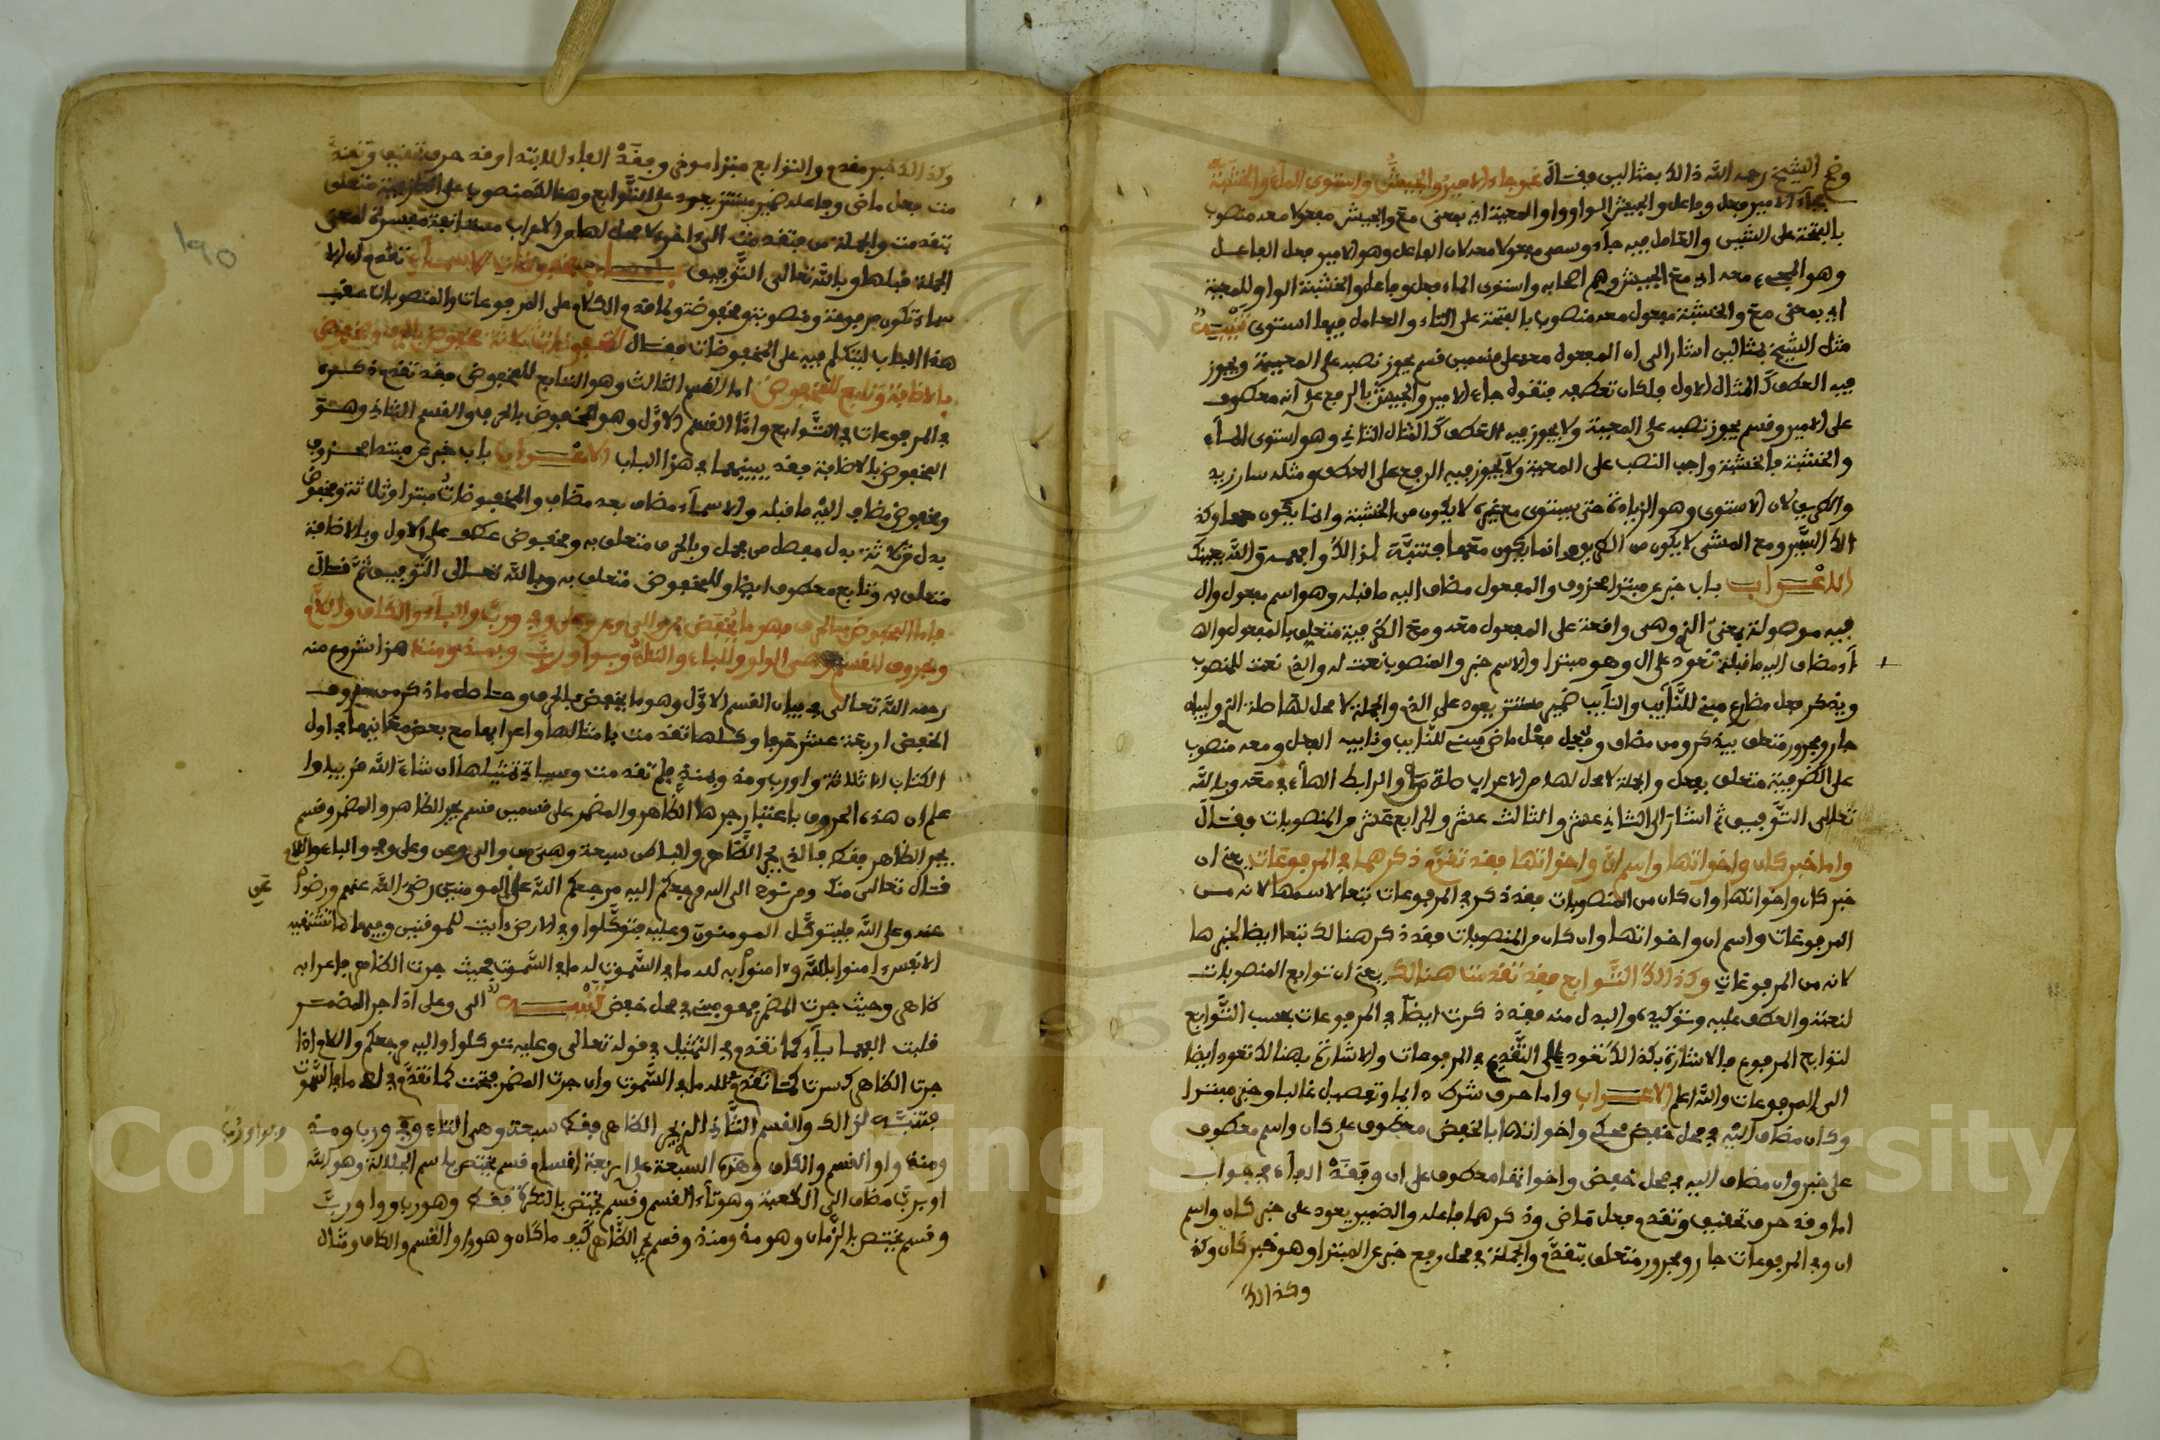 الشيخ رحمه الله ذالك بمثالين فقال نحو جاء الامير والجيش واستوى الماء والخشبة
فجاء الامير فعل وفاعل والجيش الواو واو المعية اي بمعنى مع والجيش مفعولا معه منصوب
بالفتحة على الشين والعامل فيه جاء وسمي مفعولا معه لان الفاعل وهو الامير فعل الفاعل
وهو المجيء معه اي مع الجيش وهم اصحابه واستوى الماء فعل وفاعل والخشبة الواو للمعية
اي بمعنى مع والخشبة مفعول معه منصوب بالفتحة على التاء والعامل فيها استوى تنبيه
مثل الشيخ بمثالين اشار الى ان المفعول معه على قسمين قسم يجوز نصبه على المعية ويجوز
فيه العطف كالمثال الاول فلك ان تعطفه فتقول جاء الامير والجيش بالرفع على انه معطوف
على الامير وقسم يجوز نصبه على المعية ولا يجوز فيه العطف كالمثال الثاني وهو استوى الماء
والخشبة فالخشبة واجب النصب على المعية ولا يجوز فيه الرفع على العطف ومثله سار زيد
والطريق لان الاستوى وهو الزيادة حتى يستوى مع غيره لا يكون من الخشبة وانما يكون معها وكذ
الك السير ومع المشي لا يكون من الطريق وانما يكون معها فتنبه لذالك وافهمه والله يعينك
الاعراب باب خبر عن مبتدا محذوف والمفعول مضاف اليه ما قبله وهو اسم مفعول وال
فيه موصولة بمعنى الذي وهي واقعة على المفعول معه ومع الظرفية متعلق بالمفعول والها
ء مضاف اليه ما قبله تعود على ال وهو مبتدا والاسم خبر والمنصوب نعت له والذي نعت للمنصوب
ويذكر فعل مضارع مبني للنايب والنايب ضمير مستتر يعود على الذي والجملة لا محل لها صلة الذي ولبيان
جار ومجرور متعلق بيذكر ومن مضاف وفعل فعل ماض مبني للنايب ونايبه الفعل ومعه منصوب
على الظرفية متعلق بفعل والجملة لا محل لها من الاعراب صلة من والرابط الهاء في معه وبالله
تعالى التوفيق ثم اشار الى الثاني عشر والثالث عشر والرابع عشر من المنصوبات فقال
واما خبر كان واخواتها واسم ان واخواتها فقد تقدم ذكرهما في المرفوعات يعني ان
خبر كان واخواتها وان كان من المنصوبات فقد ذكر في المرفوعات تبعا لاسمها لانه من
المرفوعات واسم ان واخواتها وان كان من المنصوبات فقد ذكر هنالك تبعا ايضا لخبرها
لانه من المرفوعات وكذالك التوابع فقد تقدمت هنالك يعني ان توابع المنصوبات
لنعت والعطف عليه وتوكيده والبدل منه فقد ذكرت ايضا في المرفوعات بحسب التوابع
لتوابع المرفوع فالاشارة بكذالك تعود على التقديم في المرفوعات والاشارة بهنالك تعود ايضا
الى المرفوعات والله اعلم الاعراب واما حرف شرط دايما وتفصيل غالبا وخبر مبتدا
وكان مضاف اليه في محل خفض محكي واخواتها بالخفض معطوف على كان واسم معطوف
على خبر وان مضاف اليه في محل خفض واخواتها معطوف على ان وفقد الفاء في جواب
اما وقد حرف تحقيق وتقدم فعل ماض وذكرهما فاعله والضمير يعود على خبر كان واسم
ان وفي المرفوعات جار ومجرور متعلق بتقدم والجملة في محل رفع خبر عن المبتدا وهو خبر كان وكذ
وكذالك
١٩٥
وكذالك خبر مقدم والتوابع مبتدا موخر وفقد الفاء للابتدا وقد حرف تحقيق وتقد
مت فعل ماض وفاعله ضمير مستتر يعود على التوابع وهنالك منصوب على الظرفية متعلق
بتقدمت والجملة من فتقدمت الى اخره لا محل لها من الاعراب مستانفة مفسرة لمعنى
الجملة قبلها وبالله تعالى التوفيق باب مخفوضات الاسماء تقدم ان الا
سماء تكون مرفوعة ومنصوبة ومخفوضة ولما قدم الكلام على المرفوعات والمنصوبات عقب
هذا الباب ليتكلم فيه على المخفوضات فقال المخفوضات ثلاثة مخفوض بالحرف ومخفوض
بالاضافة وتابع للمخفوض اما القسم الثالث وهو التابع للمخفوض فقد تقدم ذكره
في المرفوعات في التوابع واما القسم الاول وهو المخفوض بالحرف والقسم الثاني وهو
المخفوض بالاضافة فقد بينهما في هذا الباب الاعراب باب خبر عن مبتدا محذوف
ومخفوض مضاف اليه ما قبله والاسماء مضاف بعد مضاف والمخفوضات مبتدا وثلاثة ومخفوض
بدل من ثلاثة بدل مفصل من مجمل وبالحرف متعلق به ومخفوض عطف على الاول وبالاضافة
متعلق به وتابع معطوف ايضا وللمخفوض متعلق به وبالله تعالى التوفيق ثم قال
فاما المخفوض بالحرف فهو ما يخفض بمن والى وعن وعلى وفي ورب والباء والكاف واللام
وبحروف القسم وهي الواو والباء والتاء وبواو رب وبمذ ومنذ هذا شروع منه
رحمه الله تعالى في بيان القسم الاول وهو ما يخفض بالحرف وحاصل ما ذكر من حروف
الخفض اربعة عشر حرفا وكلها تقدمت بامثالها واعرابها مع بعض معانيها في اول
الكتاب الا ثلاثة واو رب ومذ ومنذ فلم تقدمت وسياتي تمثيلها ان شاء الله قريبا وا
علم ان هذه الحروف باعتبار جرها الظاهر والمضمر على قسمين قسم يجر الظاهر والمضمر وقسم
يجر الظاهر فقط فالذي يجر الظاهر والمضمر سبعة وهي من والى وعن وعلى وفي والباء واللام
قال تعالى منك ومن نوح الى الله مرجعكم اليه مرجعكم لقد رضي الله عن المومنين رضي الله عنهم ورضوا
عن
عنه وعلى الله فليتوكل المومنون وعليه فتوكلوا وفي الارض ءايت للموقنين وفيها ما تشتهيه
الانفس ءامنوا بالله وءامنوا به لله ما في السموت له ما في السموت فحيث جرت الظاهر فاعرابه
ظاهر وحيث جرت المضمر فهو مبني في محل خفض تنبيه الى وعلى اذا جر المضمر
قلبت الفهما ياء كما تقدم في التمثيل في قوله تعالى وعليه فتوكلوا واليه مرجعكم واللام اذا
جرت الظاهر كسرت كما تقدم في لله ما في السموت وان جرت المضمر فتحت كما تقدم في له ما في السموت
فتنبه لذالك والقسم الثاني الذي يجر الظاهر فقط سبعة وهي التاء ورب ومذ
وواو رب
ومنذ واو القسم والكاف وهذه السبعة على اربعة اقسام قسم يختص باسم الجلالة وهو الله
او برب مضاف الى الكعبة وهو تاء القسم وقسم يختص بالنكرة فقط وهو رب وواو رب
وقسم يختص بالزمان وهو مذ ومنذ وقسم يجر الظاهر كيف ما كان وهو واو القسم والكاف ومثال